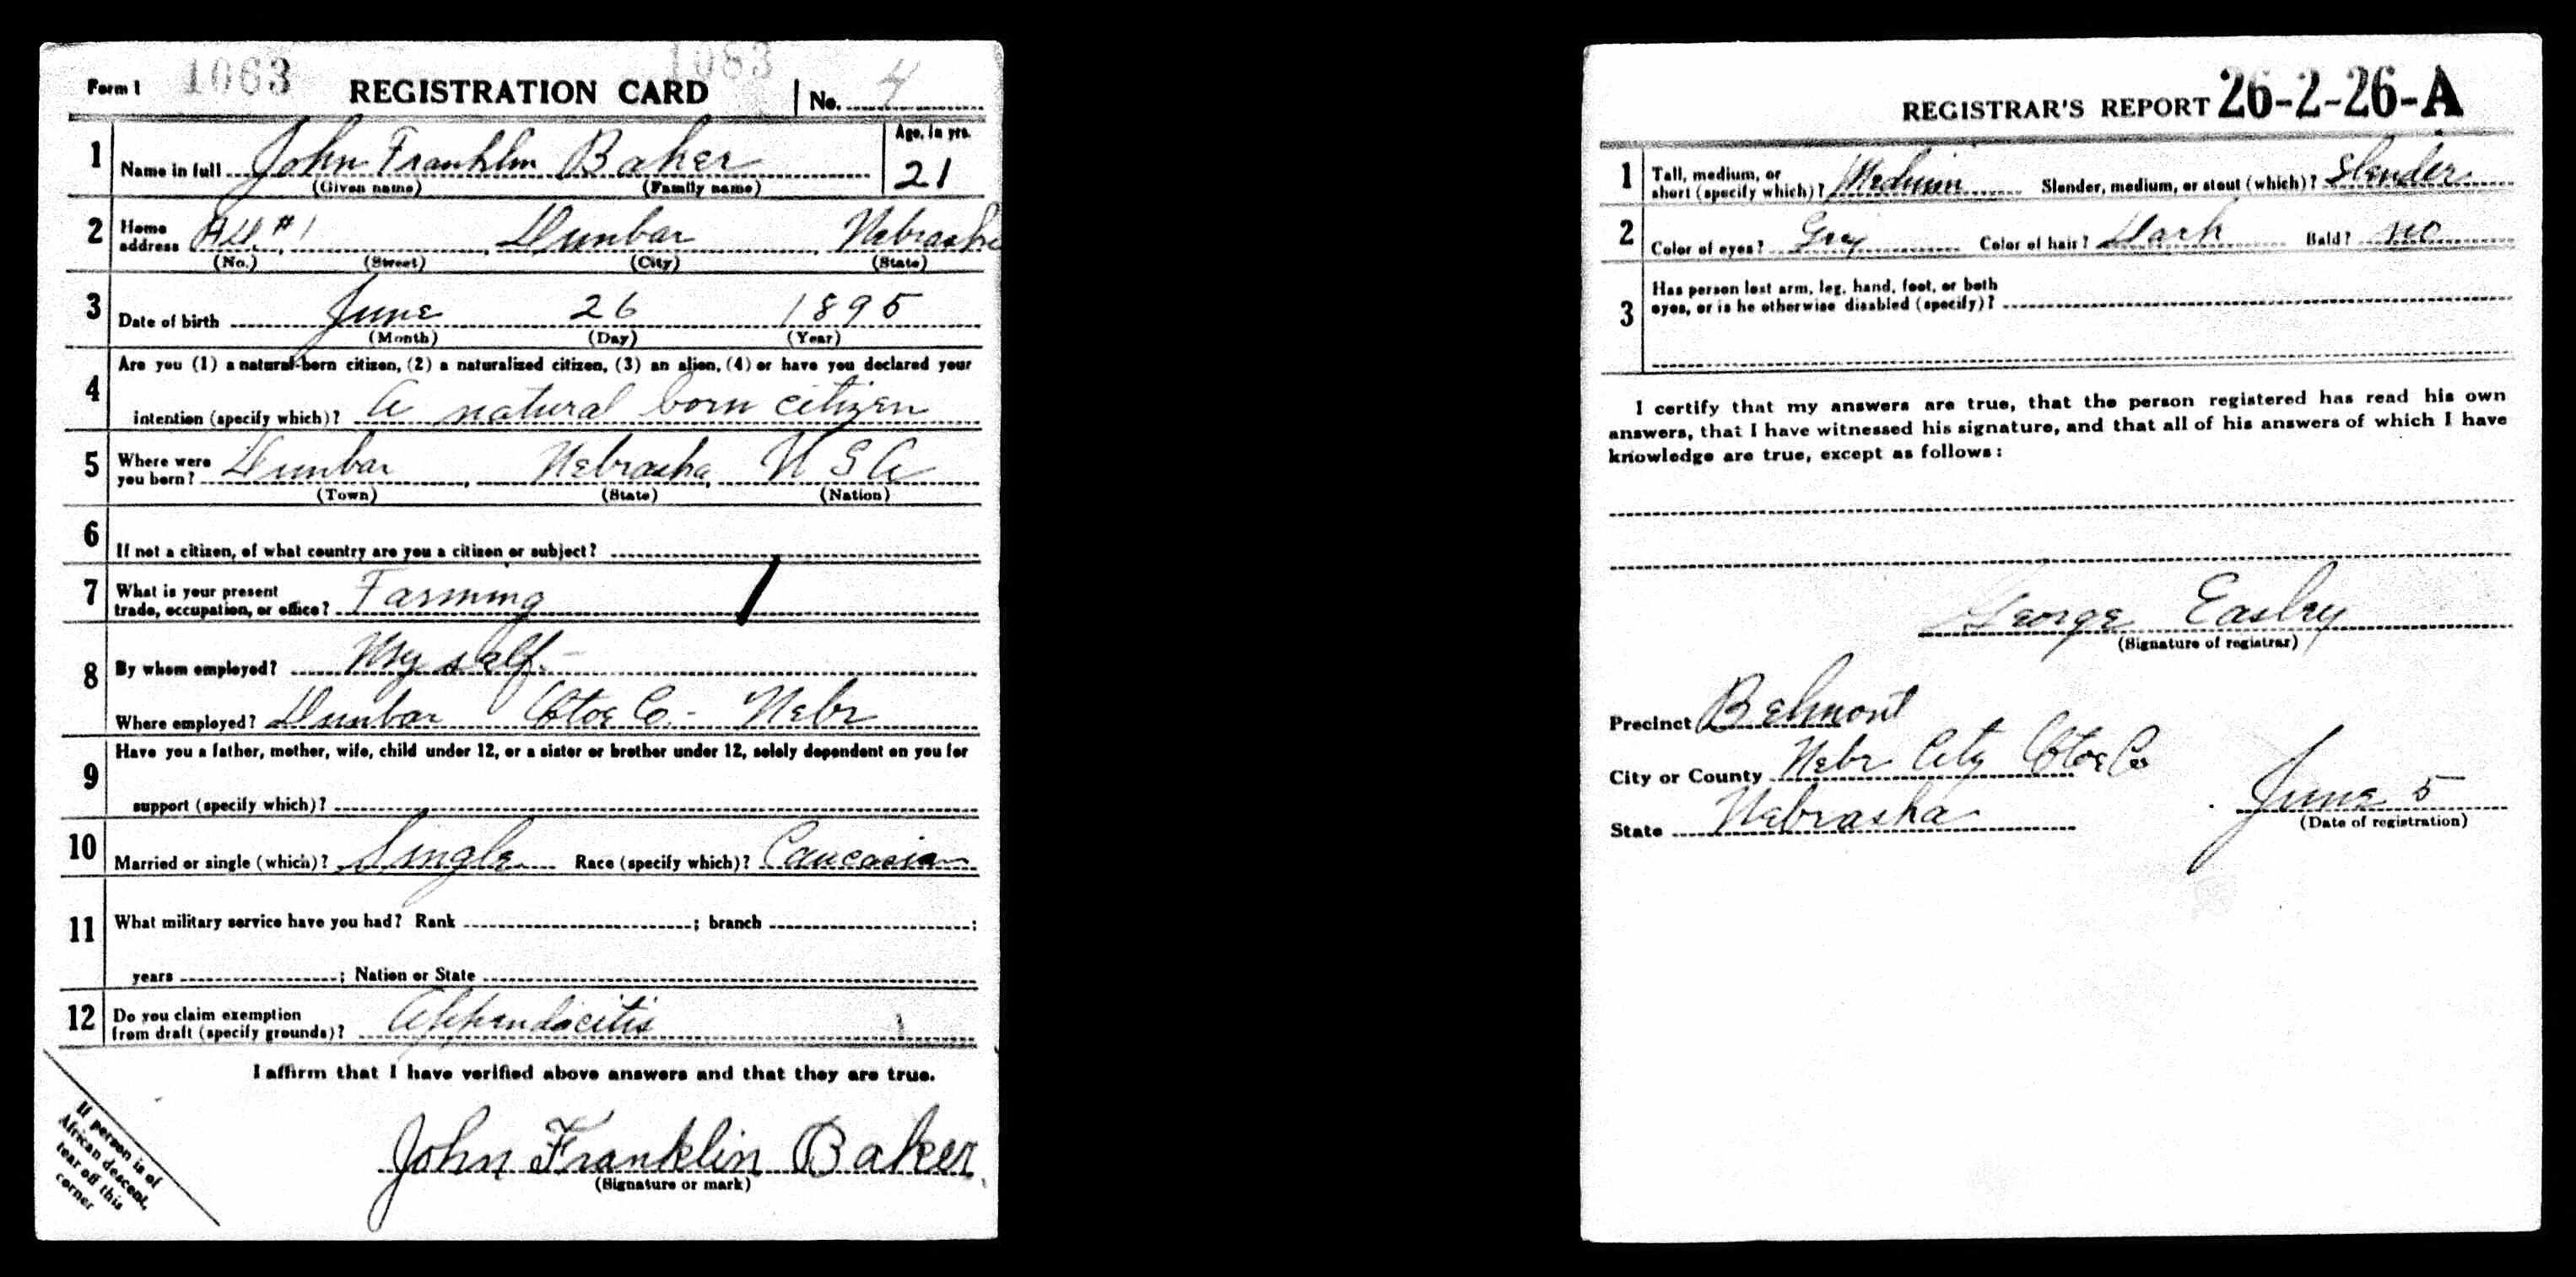 Form 1 1063 REGISTRATION CARD 1083 No. 4
1 Name in full John Franklin Baker Age, in yrs. 21
(Given name) (Family name)
2 Home address #1 Dunbar Nebraska
(No.) (Street) (City) (State)
3 Date of birth June 26 1895
(Month) (Day) (Year)
4 Are you (1) a natural-born citizen, (2) a naturalized citizen, (3) an alien, (4) or have you declared your
intention (specify which)? A natural born citizen
5 Where were you born? Dunbar, Nebraska, U S A
(Town) (State) (Nation)
6 If not a citizen, of what country are you a citizen or subject?
7 What is your present
trade, occupation, or office? Farming
8 By whom employed? My self.
Where employed? Dunbar Otoe Co - Nebr
9 Have you a father, mother, wife, child under 12, or a sister or brother under 12, solely dependent on you for
support (specify which)?
10 Married or single (which)? Single Race (specify which)? Caucasian
11 What military service have you had? Rank ; branch ;
years ; Nation or State
12 Do you claim exemption
from draft (specify grounds)? Appendicitis
I affirm that I have verified above answers and that they are true.
John Franklin Baker
(Signature or mark)
If person is of
African descent,
tear off this
corner
REGISTRAR'S REPORT 26-2-26-A
1 Tall, medium, or
short (specify which)? Medium Slender, medium, or stout (which)? Slender
2 Color of eyes? Grey Color of hair? Dark Bald? no
3 Has person lost arm, leg, hand, foot, or both
eyes, or is he otherwise disabled (specify)?
I certify that my answers are true, that the person registered has read his own
answers, that I have witnessed his signature, and that all of his answers of which I have
knowledge are true, except as follows:
George Easley
(Signature of registrar)
Precinct Belmont
City or County Nebr City Otoe Co
State Nebraska June 5
(Date of registration)